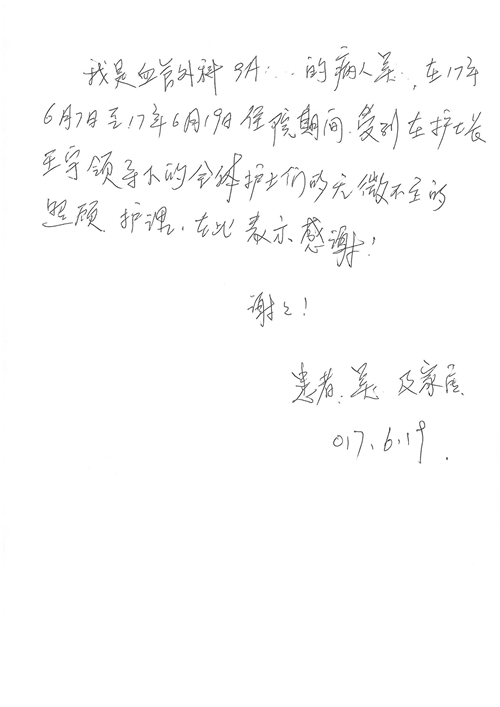 我是血管外科9A 的病人吴 ,在17年
6月7日至17年6月19日住院期间.受到在护士长
王宇领导下的全体护士们的无微不至的
照顾 护理,在此表示感谢!
谢谢!
患者:吴 及家属
017.6.19.